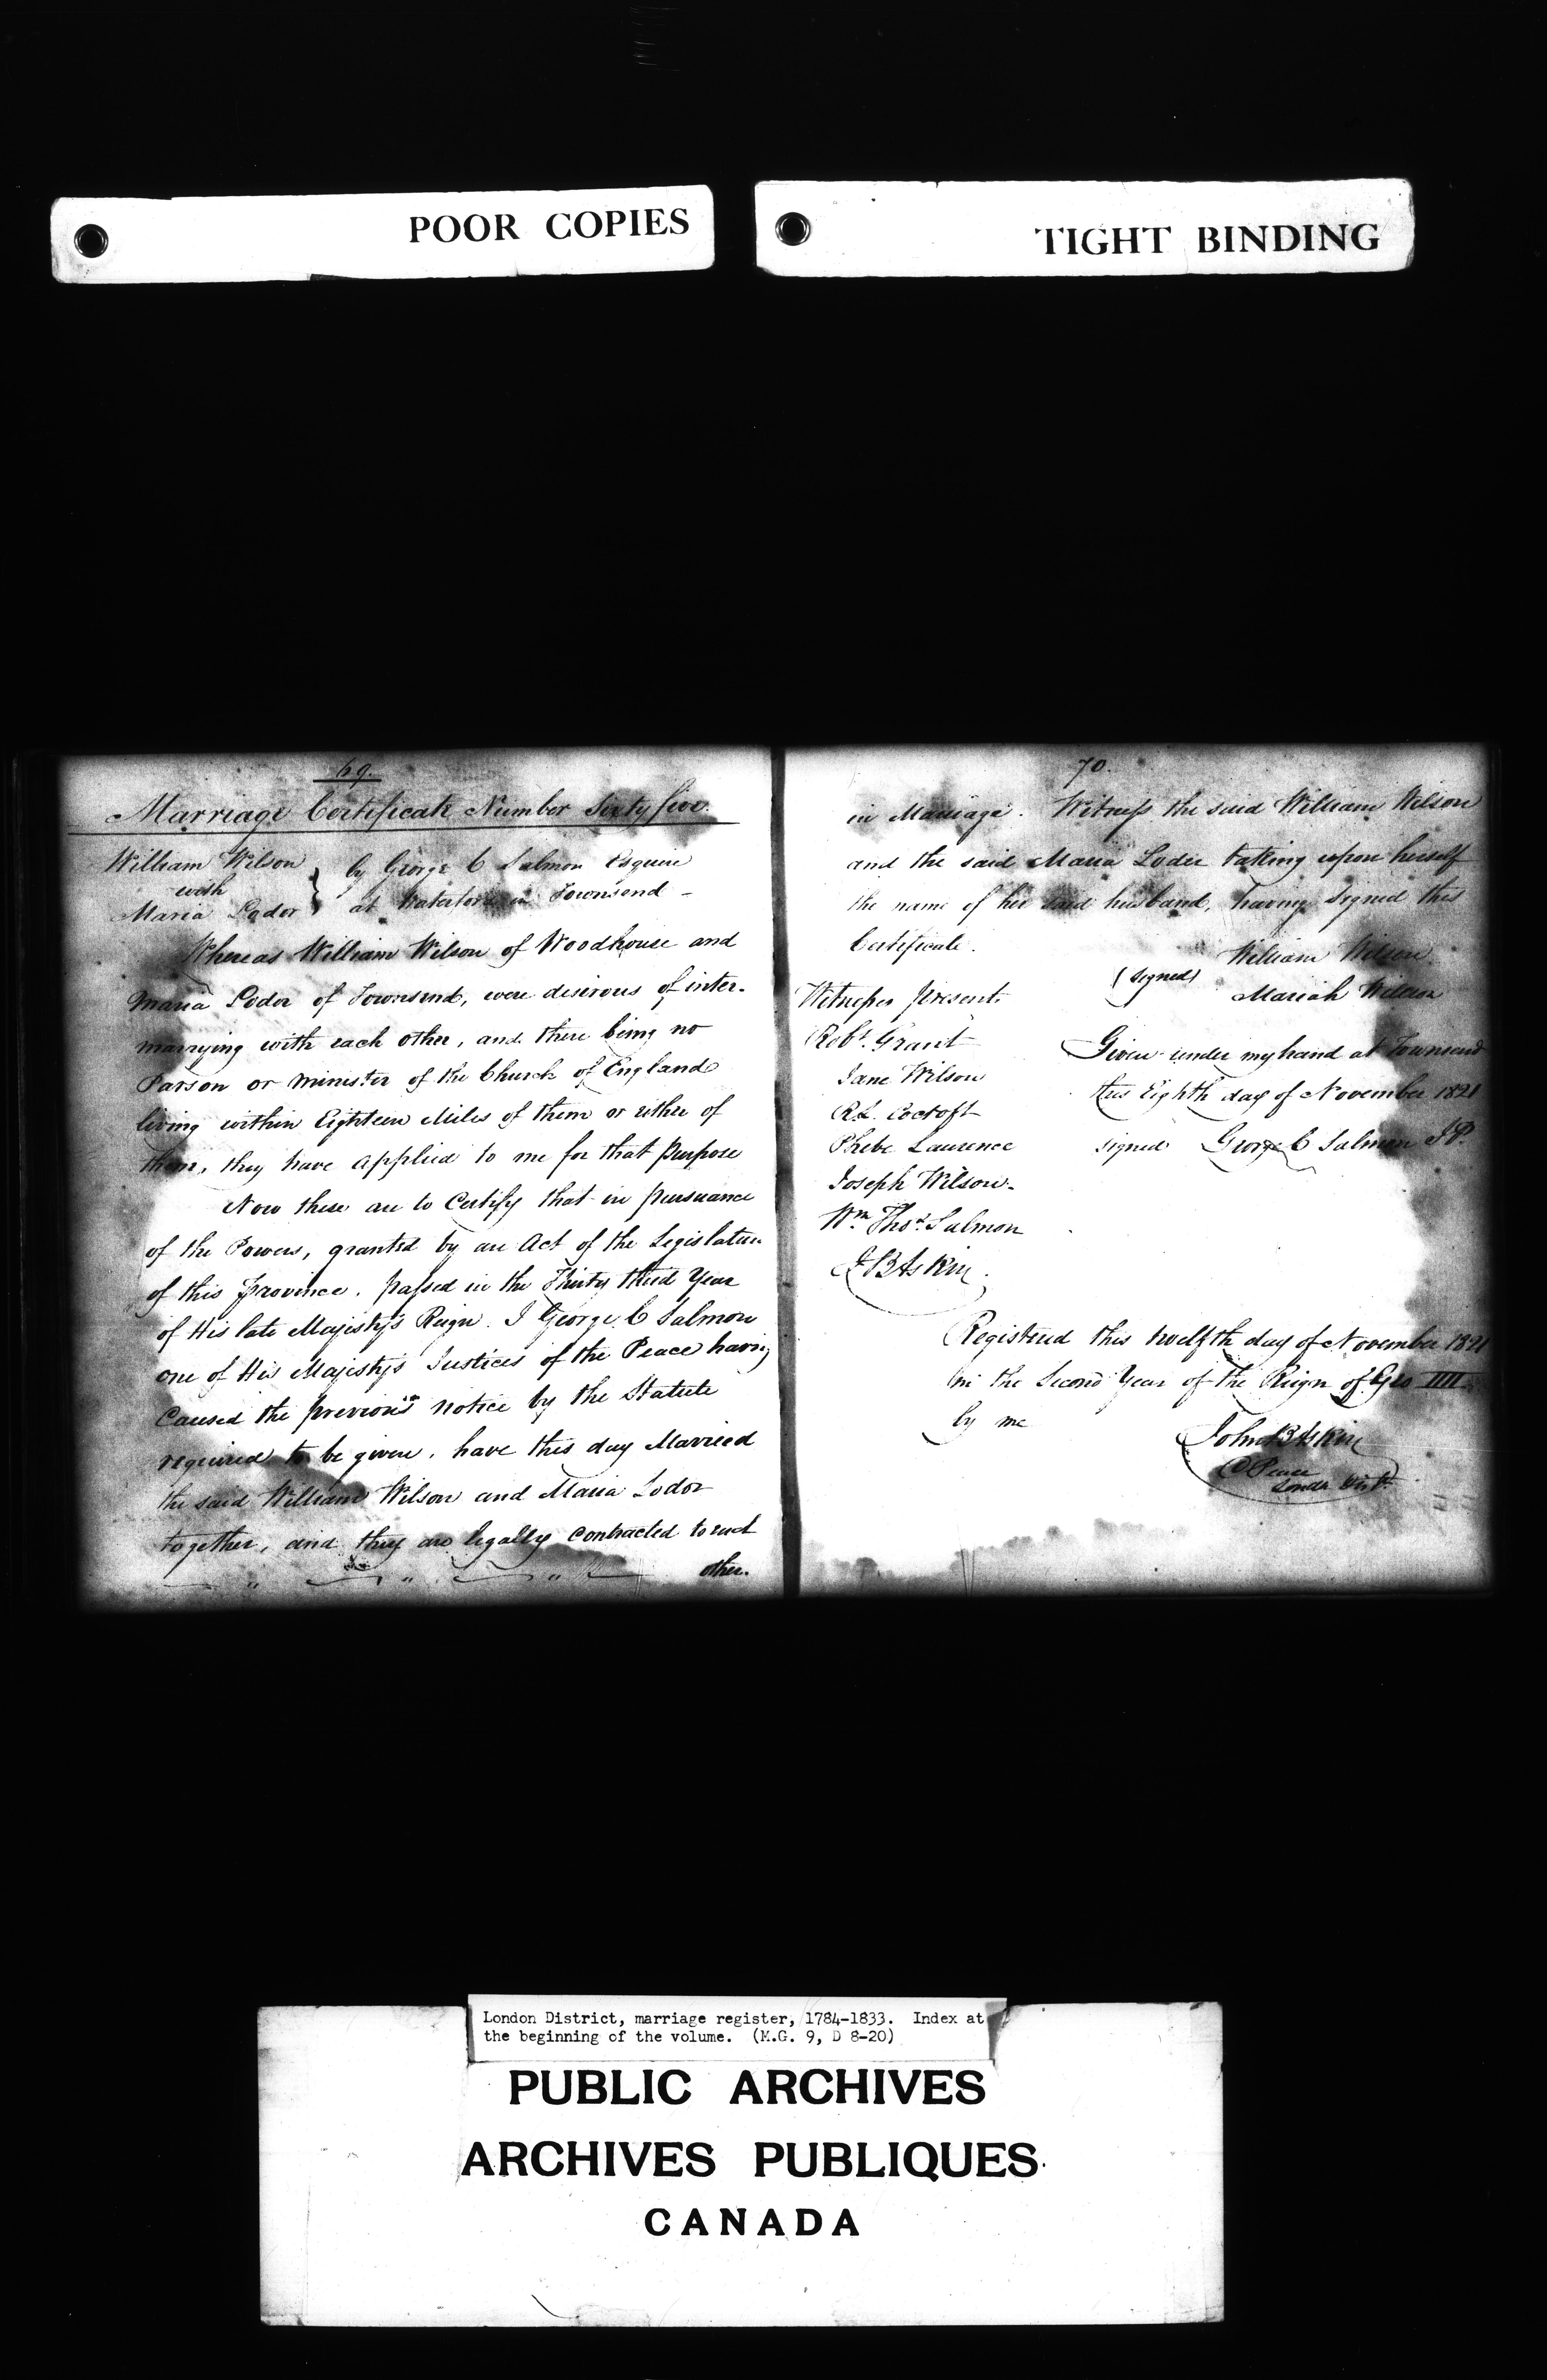 POOR COPIES
TIGHT BINDING
69.
Marriage Certificate Number Sixty five.
William Wilson
with
Maria Lodor
by George C Salmon Esquire
at Waterford in Townsend -
Whereas William Wilson of Woodhouse and
Maria Lodor of Townsend, were desirous of inter-
marrying with each other, and there being no
Parson or Minister of the Church of England
living within Eighteen Miles of them or either of
them, they have applied to me for that Purpose
Now these are to Certify that in pursuance
of the Powers, granted by an Act of the Legislature
of this Province, passed in the Thirty third Year
of His late Majesty's Reign. I George C Salmon
one of His Majesty's Justices of the Peace having
Caused the previous notice by the Statute
required to be given, have this day Married
the said William Wilson and Maria Lodor
together, and they are legally contracted to each
other.
70.
in Marriage. Witness the said William Wilson
and the said Maria Loder taking upon herself
the name of her said husband, having Signed this
Certificate.
William Wilson
(Signed)
Mariah Wilson
Witnesses present
Robt. Grant
Jane Wilson
R.L. Cocroft
Phebe Laurence
Joseph Wilson.
Wm. Thos. Salmon
J B Askin
Given under my hand at Townsend
this Eighth day of November 1821
signed George C Salmon J.P.
Registered this twelfth day of November 1821
in the Second Year of the Reign of Geo IIII
by me
John B Askin
C Peace
Londn Dist.
London District, marriage register, 1784-1833. Index at
the beginning of the volume. (M.G. 9, D 8-20)
PUBLIC ARCHIVES
ARCHIVES PUBLIQUES
CANADA